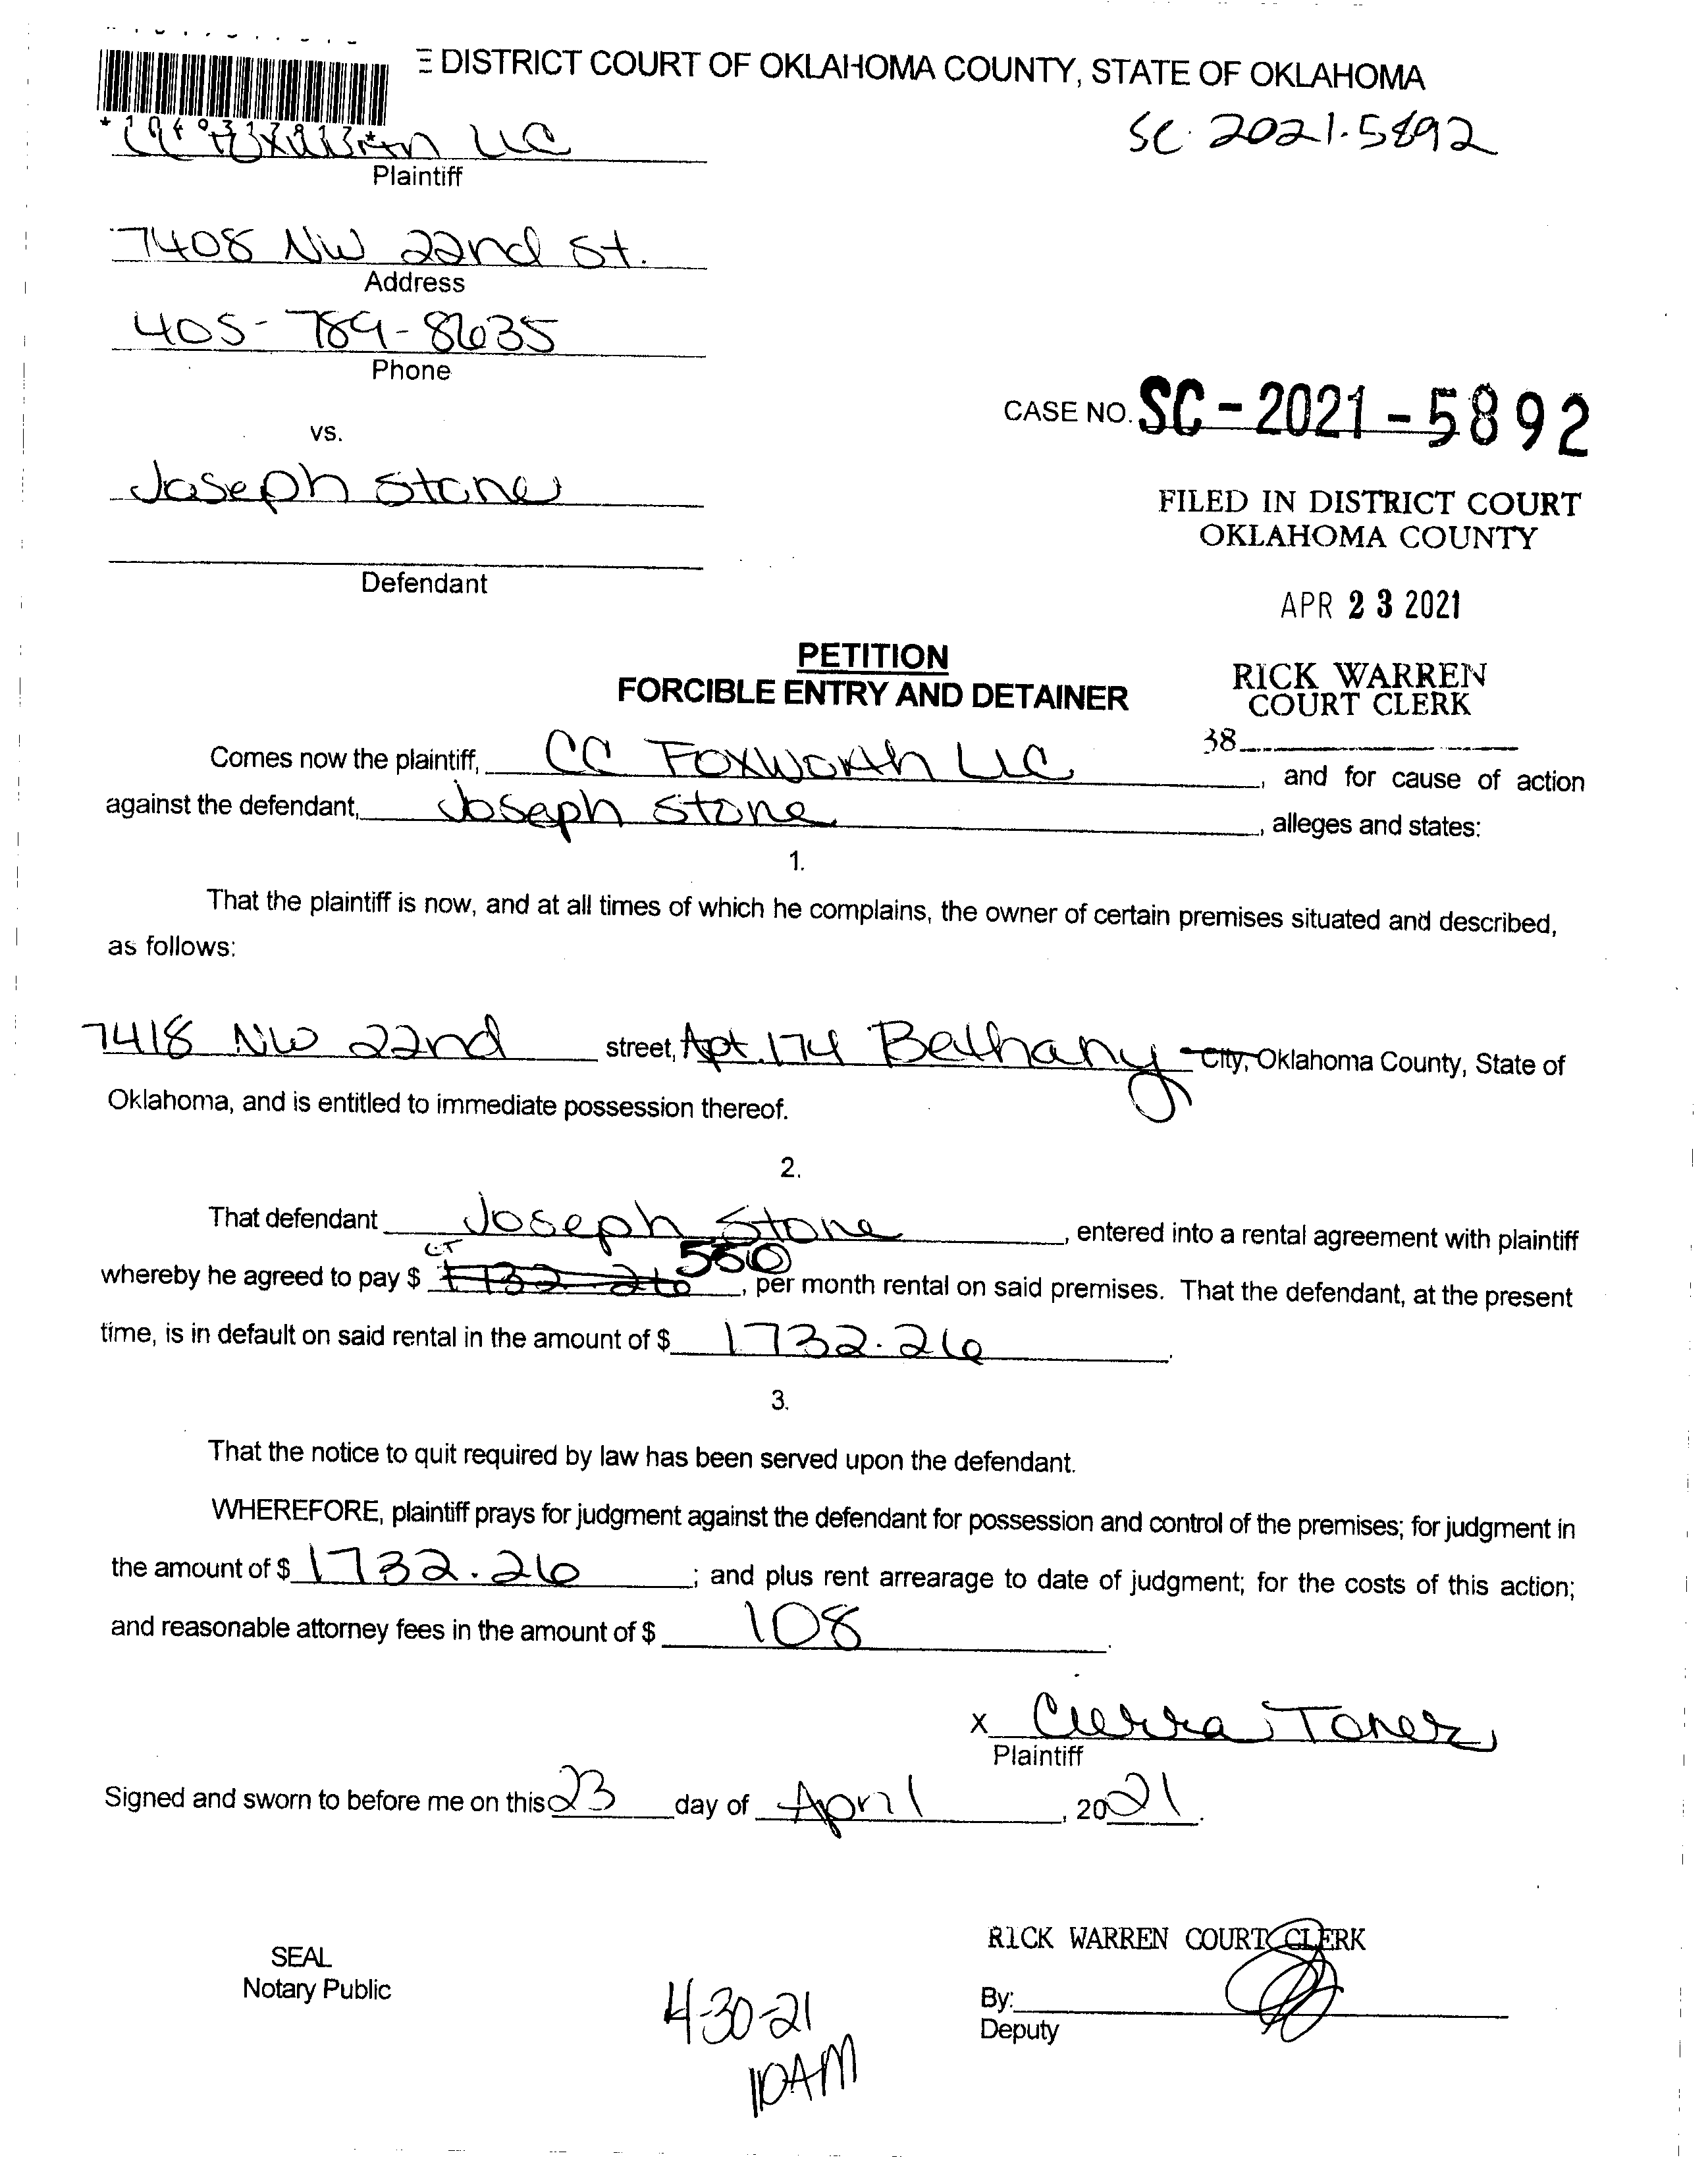 E DISTRICT COURT OF OKLAHOMA COUNTY, STATE OF OKLAHOMA
SC 2021-5892
CC Foxworth LLC
Plaintiff
7408 NW 22nd St.
Address
405-789-8635
Phone
CASE NO. SC-2021-5892
vs.
Joseph Stone
FILED IN DISTRICT COURT
OKLAHOMA COUNTY
Defendant
APR 23 2021
PETITION
FORCIBLE ENTRY AND DETAINER
RICK WARREN
COURT CLERK
38
Comes now the plaintiff, CC Foxworth LLC, and for cause of action
against the defendant, Joseph Stone, alleges and states:
1.
That the plaintiff is now, and at all times of which he complains, the owner of certain premises situated and described,
as follows:
7418 NW 22nd street, Apt. 174 Bethany City, Oklahoma County, State of
Oklahoma, and is entitled to immediate possession thereof.
2.
That defendant Joseph Stone, entered into a rental agreement with plaintiff
CT
whereby he agreed to pay $ 1732.26 550, per month rental on said premises. That the defendant, at the present
time, is in default on said rental in the amount of $ 1732.26.
3.
That the notice to quit required by law has been served upon the defendant.
WHEREFORE, plaintiff prays for judgment against the defendant for possession and control of the premises; for judgment in
the amount of $ 1732.26; and plus rent arrearage to date of judgment; for the costs of this action;
and reasonable attorney fees in the amount of $ 108.
X Cierra Toner
Plaintiff
Signed and sworn to before me on this 23 day of April, 2021.
RICK WARREN COURT CLERK
SEAL
Notary Public
4-30-21
10AM
By:
Deputy